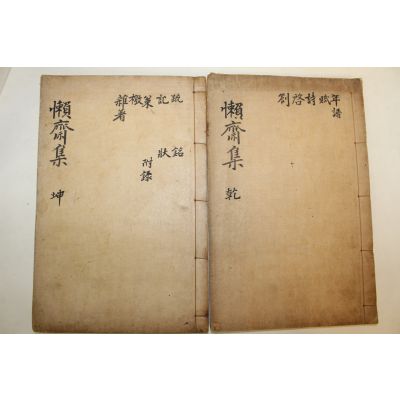 年譜
賦
詩
啓
劄
懶齋集
乾
疏
銘
記
狀
策
附錄
檄
雜著
懶齋集
坤